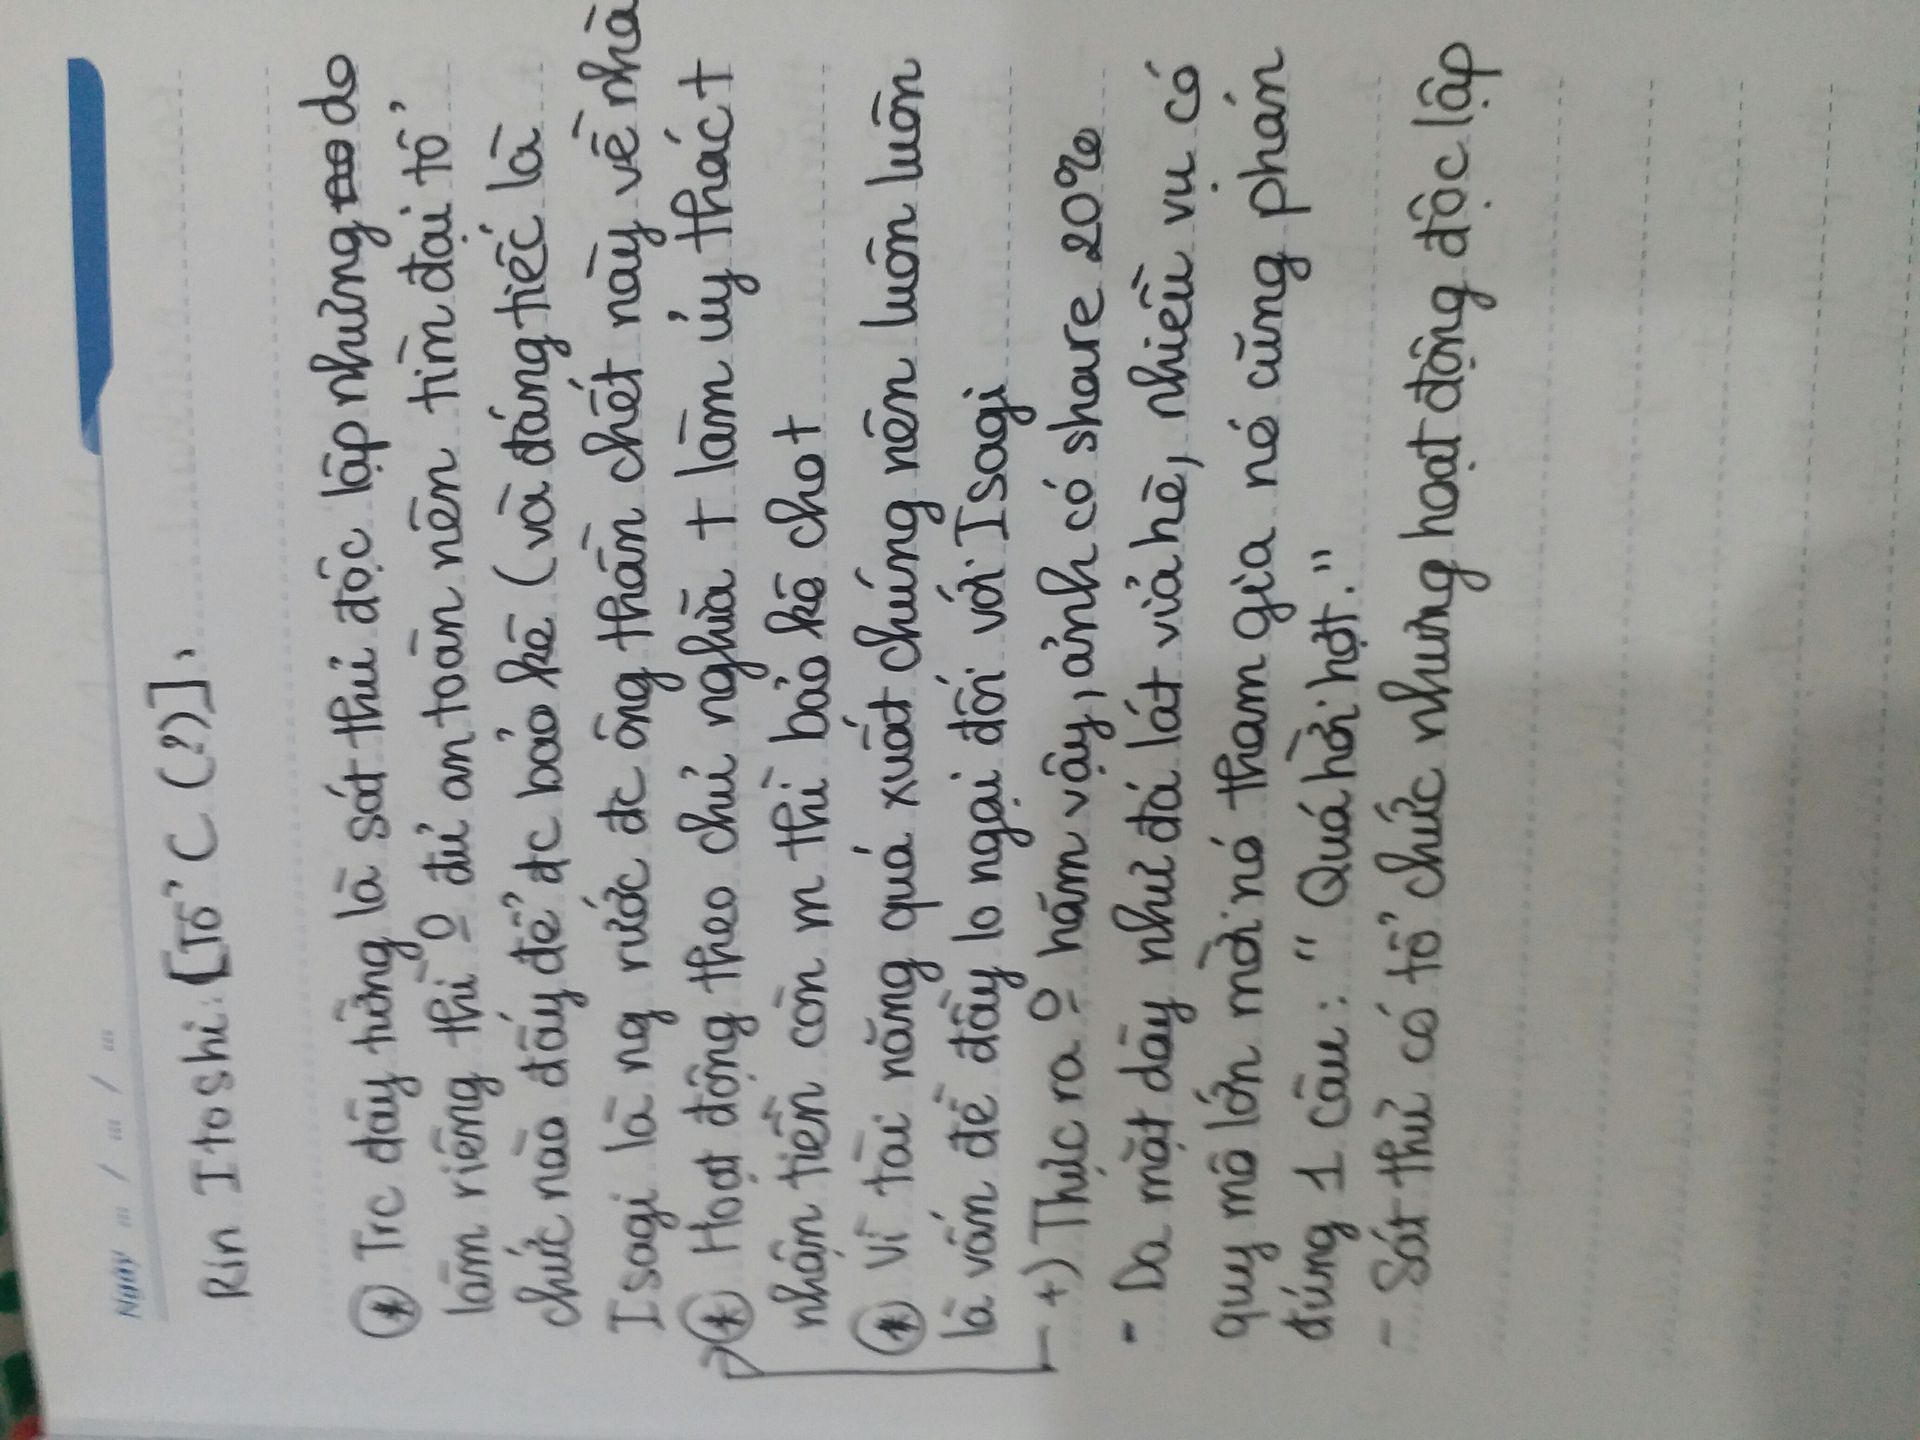 Ngày m / m / m
Rin Itoshi: [Tổ C (?)],
(*) Trc đây từng là sát thủ độc lập nhưng do
làm riêng thì o đủ an toàn nên tìm đại tổ
chức nào đấy để đc bảo kê (và đáng tiếc là
Isagi là ng rước đc ông thần chết này về nhà
(*) Hoạt động theo chủ nghĩa t làm ủy thác t
nhận tiền còn m thì bảo kê cho t
(*) Vì tài năng quá xuất chúng nên luôn luôn
là vấn đề đầy lo ngại đối với Isagi
+) Thực ra o hãm vậy, ảnh có share 20%
- Da mặt dày như đá lát vỉa hè, nhiều vụ có
quy mô lớn mời nó tham gia nó cũng phán
đúng 1 câu: " Quá hời hợt."
- Sát thủ có tổ chức nhưng hoạt động độc lập